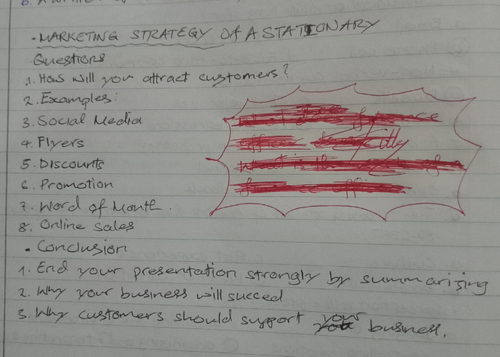 • MARKETING STRATEGY OF A STATIONARY
Questions
1. How will you attract customers?
2. Examples:
3. Social Media
4. Flyers
5. Discounts
6. Promotion
7. Word of Mouth.
8. Online Sales
• Conclusion
1. End your presentation strongly by summarising
2. Why your business will succed
3. Why customers should support your business.